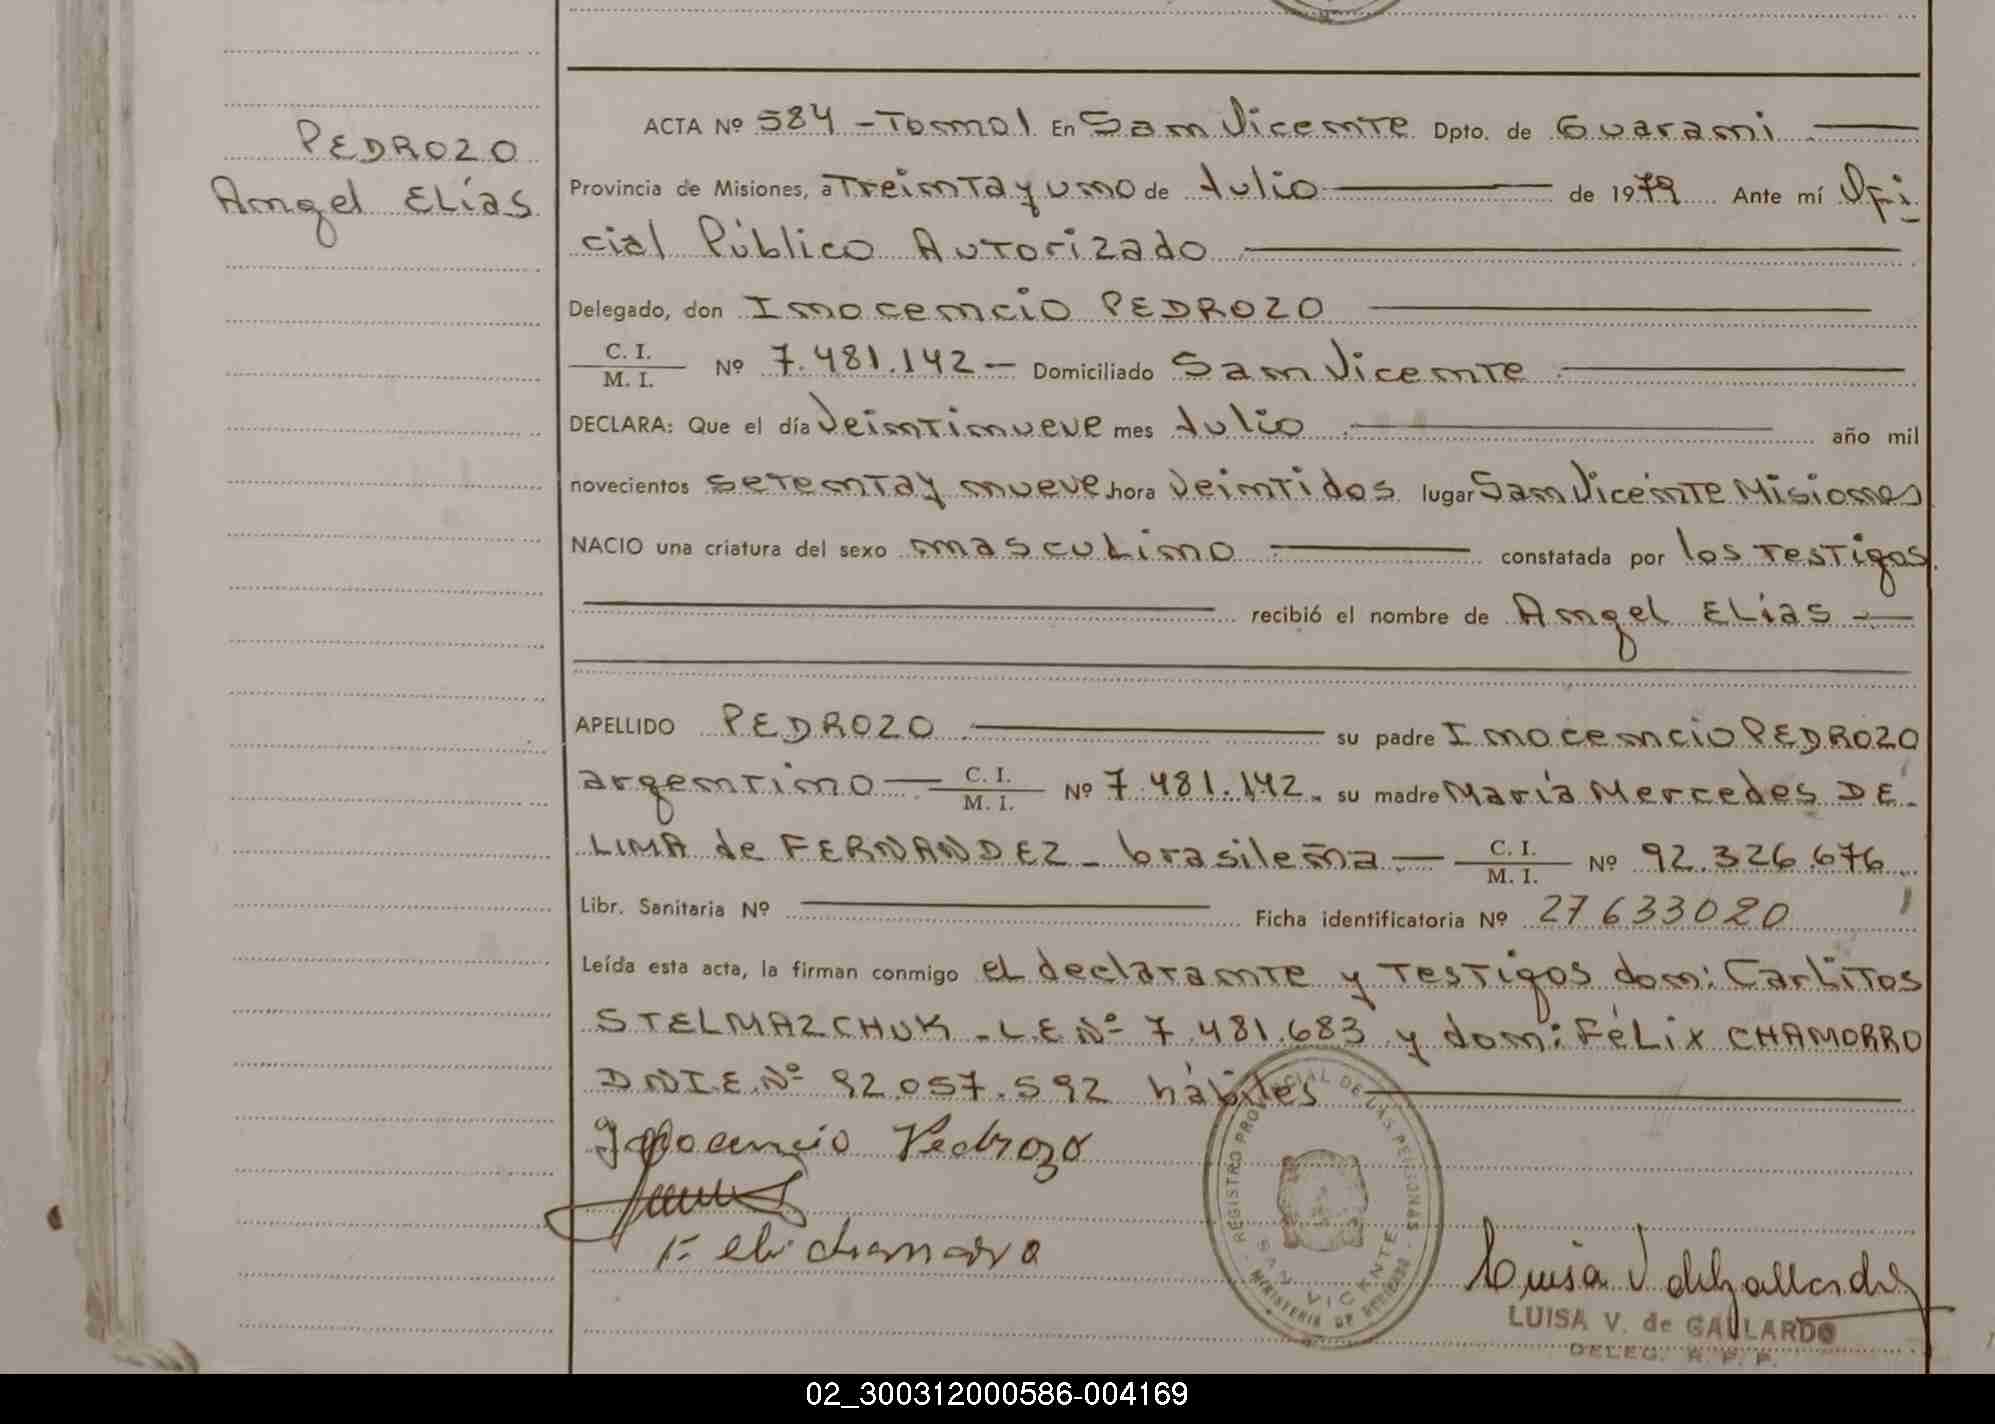 PEDROZO
Angel ELías
ACTA Nº 584 - Tomo I En San Vicente Dpto. de Guaraní
Provincia de Misiones, a Treinta y uno de Julio de 1979 Ante mí Ofi
cial Público Autorizado
Delegado, don Inocencio PEDROZO
C. I.
M. I. Nº 7.481.142 - Domiciliado San Vicente
DECLARA: Que el día Veintinueve mes Julio año mil
novecientos setenta y nueve hora Veintidos lugar San Vicente Misiones
NACIO una criatura del sexo masculino constatada por los Testigos
recibió el nombre de Angel ELías
APELLIDO PEDROZO su padre Inocencio PEDROZO
argentino C. I. M. I. Nº 7.481.142. su madre María Mercedes DE
LIMA de FERNANDEZ - brasileña C. I. M. I. Nº 92.326.676
Libr. Sanitaria Nº Ficha identificatoria Nº 27633020
Leída esta acta, la firman conmigo el declarante y Testigos don: Carlitos
STELMAZCHUK - L.E.Nº 7.481.683 y don: Félix CHAMORRO
DNI.E.Nº 92.057.592 hábiles
Inocencio Pedrozo
REGISTRO PROVINCIAL DE LAS PERSONAS
SAN VICENTE
MINISTERIO DE GOBIERNO
Luisa V. de Gallardo
LUISA V. de GALLARDO
DELEG. R. P. P.
02_300312000586-004169